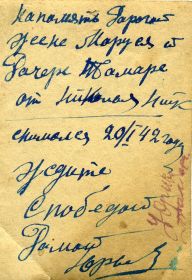 На память Дорогой
жене Марусе и
Дочери Тамаре
от Николая
снимался 20/I 42 год
Ждите
с победой
Домой